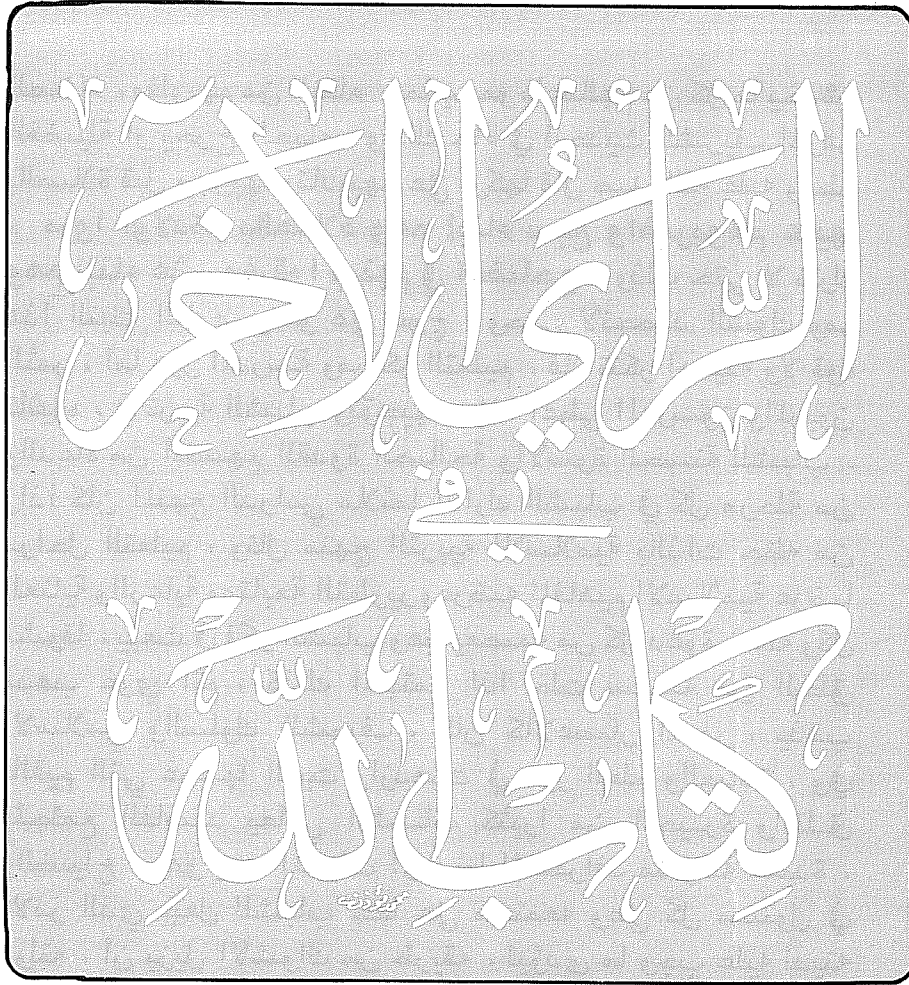 الرَّأيُ الآخر
في
كِتَابِ اللَّهِ